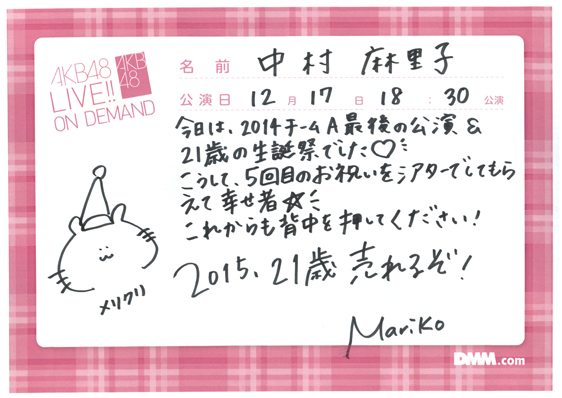 AKB48
LIVE!!
ON DEMAND
AKB
48
名前 中村 麻里子
公演日 12月17日 18:30公演
今日は、2014チームA最後の公演&
21歳の生誕祭でした♡
こうして、5回目のお祝いをシアターでしてもら
えて幸せ者☆
これからも背中を押してください!
2015、21歳 売れるぞ!
メリクリ
Mariko
DMM.com